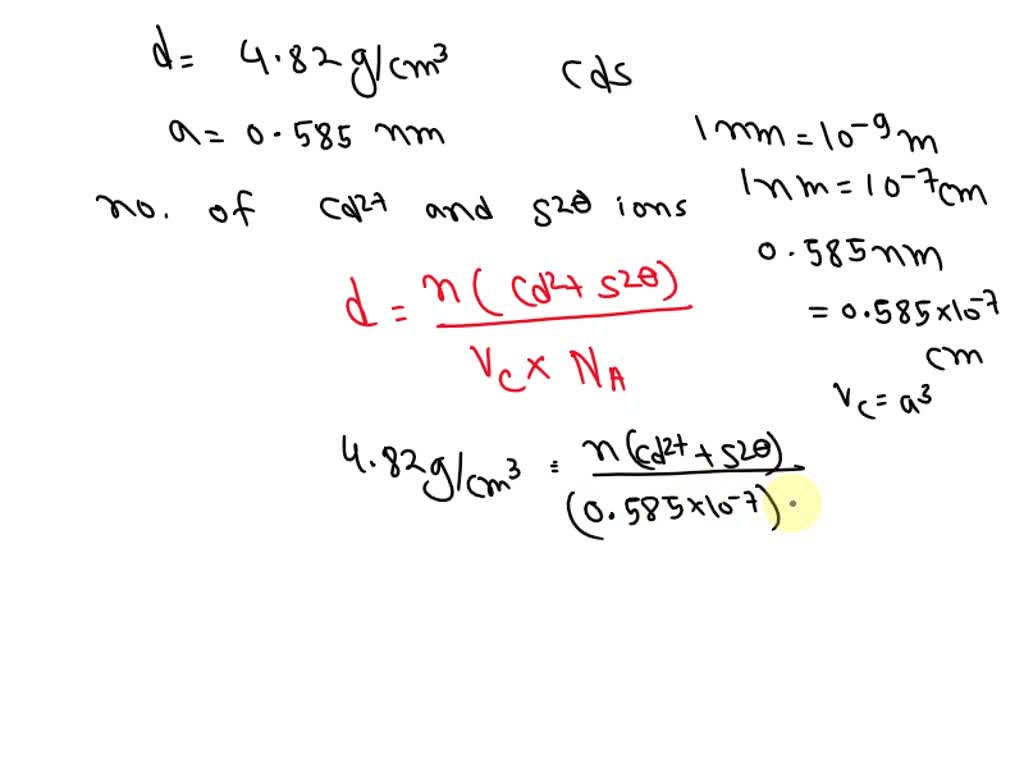 d = 4.82 g/cm³
cds
a = 0.585 nm
1 nm = 10⁻⁹ m
1 nm = 10⁻⁷ cm
no. of cd²⁺ and s²⊖ ions
0.585 nm
= 0.585 × 10⁻⁷
cm
d = n ( cd²⁺ s²⊖ )
V_c × N_A
V_c = a³
4.82 g/cm³ = n ( cd²⁺ + s²⊖ )
(0.585 × 10⁻⁷) .